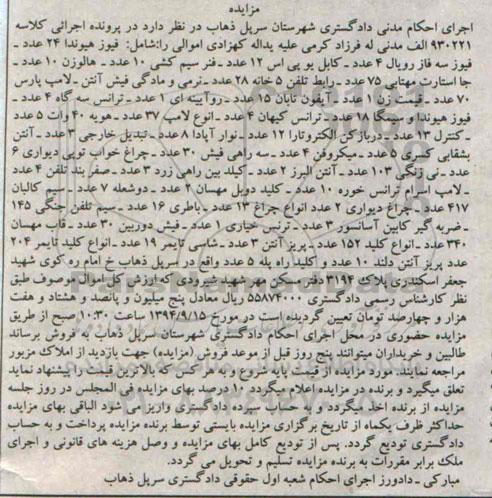 مزایده
اجرای احکام مدنی دادگستری شهرستان سرپل ذهاب در نظر دارد در پرونده اجرائی کلاسه
۹۳۰۲۲۱ الف مدنی له فرزاد کرمی علیه یداله کهزادی اموالی را:شامل: فیوز هیوندا ۲۴ عدد -
فیوز سه فاز رویال ۴ عدد - کابل یو پی اس ۱۲ عدد - فنر سیم کشی ۱۰ عدد - هالوزن ۱۰ عدد -
جا استارت مهتابی ۷۵ عدد - رابط تلفن ۵ خانه ۲۸ عدد - نرمی و مادگی فیش آنتن - لامپ پارس
۷۰ عدد - قیمت زن ۱ عدد - آیفون تابان ۱۵ عدد - روآیینه ای ۱ عدد - ترانس سه گاه ۴ عدد -
فیوز هیوندا و سیمگا ۱۸ عدد - ترانس کیهان ۴ عدد - انوع لامپ ۳۷ عدد - هویه ۴۰ وات ۵ عدد
- کنترل ۱۳ عدد - دربازکن الکتروتارا ۱۲ عدد - نوار آپادا ۸ عدد - تبدیل خارجی ۳ عدد - آنتن
بشقابی کسری ۵ عدد - میکروفن ۴ عدد - سه راهی فیش ۳۰ عدد - چراغ خواب توپی دیواری ۶
عدد - نی زنگی ۱۰۳ عدد - آنتن البرز ۲ عدد - کیلد بین راهی زرد ۳ عدد - صفر بند تلفن ۴ عدد
- لامپ اسرام ترانس خوره ۱۰ عدد - کلید دوبل مهسان ۲ عدد - دوشعله ۷ عدد - سیم کالبان
۴۱۷ عدد - چراغ دیواری ۲ عدد انواع چراغ ۱۳ عدد - باطری ۱۶ عدد - سیم تلفن جنگی ۱۴۵
- ضربه گیر کابین آسانسور ۳ عدد - ترنس خیاری ۱ عدد - فیش دوربین ۳۰ عدد - قاب مهسان
۳۴۰ عدد - انواع کلید ۱۵۲ عدد - پریز آنتن ۳ عدد - شاسی تایمر ۱۹ عدد - انواع کلید تایمر ۲۰۴
عدد پریز آنتن دلند ۱۰ عدد و کلید راه پله ۵ عدد واقع در سرپل ذهاب خ امام ره کوی شهید
جعفر اسکندری پلاک ۳۱۹۴ دفتر مسکن مهر شهید شیرودی که ارزش کل اموال موصوف طبق
نظر کارشناس رسمی دادگستری ۵۵۸۷۴۰۰۰ ریال معادل پنج میلیون و پانصد و هشتاد و هفت
هزار و چهارصد تومان تعیین گردیده است در مورخ ۱۳۹۴/۹/۱۵ ساعت ۱۰:۳۰ صبح از طریق
مزایده حضوری در محل اجرای احکام دادگستری شهرستان سرپل ذهاب به فروش برساند
طالبین و خریداران میتوانند پنج روز قبل از موعد فروش (مزایده) جهت بازدید از املاک مزبور
مراجعه نمایند. مورد مزایده از قیمت پایه شروع و به هر کس که بالاترین قیمت را پیشنهاد نماید
تعلق میگیرد و برنده در مزایده اعلام میگردد ۱۰ درصد بهای مزایده فی المجلس در روز جلسه
مزایده از برنده اخذ میگردد و به حساب سپرده دادگستری واریز می شود الباقی بهای مزایده
حداکثر ظرف یکماه از تاریخ برگزاری مزایده بایستی توسط برنده مزایده پرداخت و به حساب
دادگستری تودیع گردد. پس از تودیع کامل بهای مزایده و وصل هزینه های قانونی و اجرای
ملک برابر مقررات به برنده مزایده تسلیم و تحویل می گردد.
مبارکی - دادورز اجرای احکام شعبه اول حقوقی دادگستری سرپل ذهاب